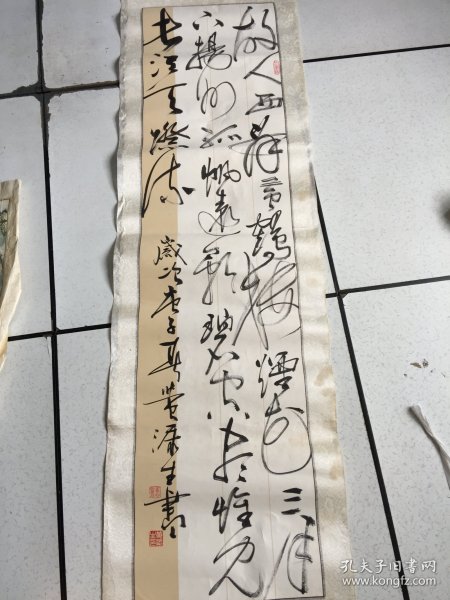 故人西辞黄鹤楼烟花三月
下扬州孤帆远影碧空尽惟见
长江天际流
岁次庚子春黄源生书
孔夫子旧书网
www.kongfz.com